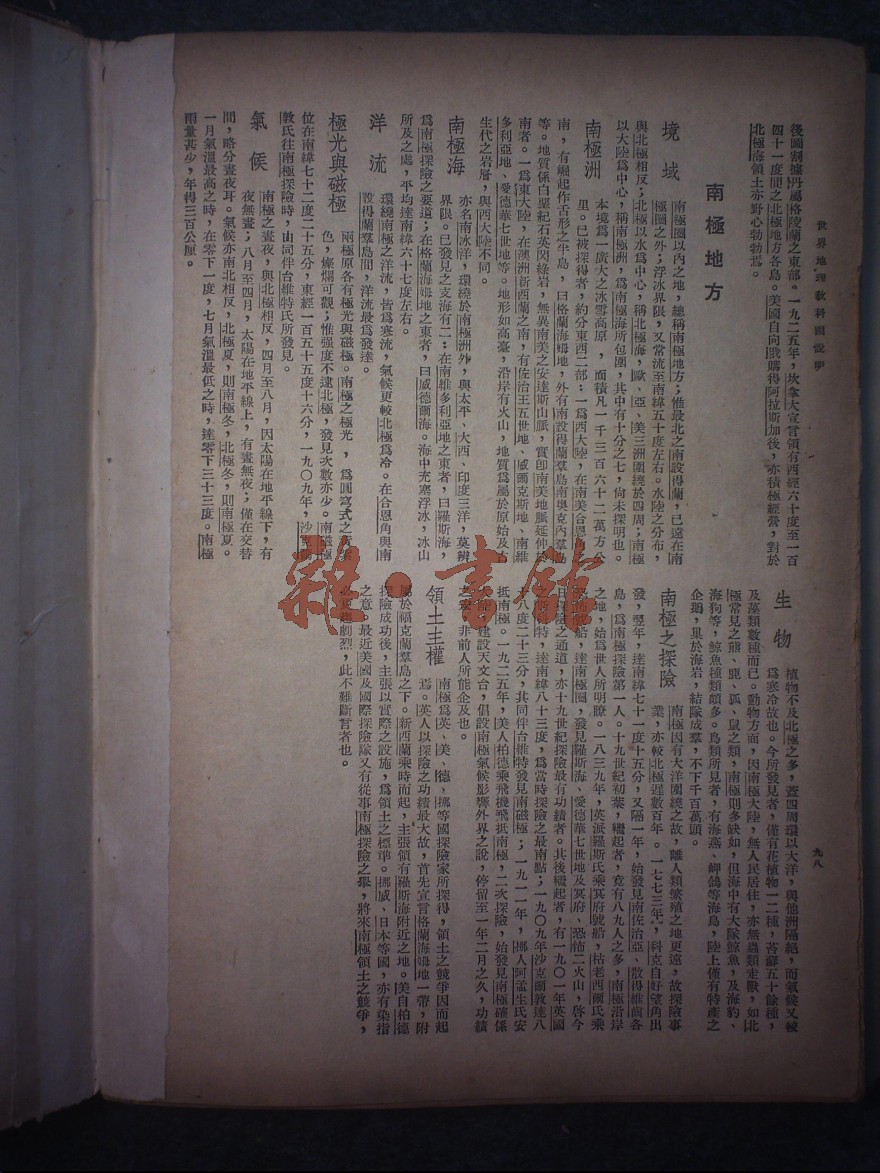 世界地理教科圖說明
九八
後圖割據丹屬格陵蘭之東部。一九二五年，坎拿大宣言領有西經六十度至一百
四十一度間之北極地方各島。美國自向俄購得阿拉斯加後，亦積極經營，對於
北極海領土亦野心勃勃焉。
南極地方
境域
南極圈以內之地，總稱南極地方；惟最北之南設得蘭，已遠在南
極圈之外；浮冰界限，又常流至南緯五十度左右。水陸之分布，
與北極相反；北極以水為中心，稱北極海，歐、亞、美三洲圍繞於四周；南極
以大陸為中心，稱南極洲，為南極海所包圍，其中有十分之七，尙未探明也。
南極洲
本境為一廣大之冰雪高原，面積凡一千三百六十二萬方公
里。已被探得者，約分東西二部：一為西大陸，在南美合恩角之
南，有崛起作舌形之半島，曰格蘭海姆地，外有南設得蘭羣島南奧克內羣島
等。地質係白堊紀石英閃綠岩，無異南美之安達斯山脈，實卽南美地脈延伸於
南者。一為東大陸，在澳洲新西蘭之南，有佐治王五世地、威爾克斯地、南維
多利亞地、愛德華七世地等。地形如高臺，沿岸有火山，地質為屬於原始及古
生代之岩層，與西大陸不同。
南極海
亦名南冰洋，環繞於南極洲外，與太平、大西、印度三洋，莫辨
界限。已發見之支海有二：在南維多利亞地之東者，曰羅斯海，
為南極探險之要道；在格蘭海姆地之東者，曰威德爾海。海中充塞浮冰，冰山
所及之處，平均達南緯六十七度左右。
洋流
環繞南極之洋流，皆為寒流，氣候更較北極為冷。在合恩角與南
設得蘭羣島間，洋流最為發達。
極光與磁極
兩極原各有極光與磁極。南極之極光，為圓穹式之
色，燦爛可觀；惟强度不逮北極，發見次數亦少。南磁極
位在南緯七十二度二十五分，東經一百五十五度十六分，一九〇九年，沙克爾
敦氏往南極探險時，由同伴台維特氏所發見。
氣候
南極之晝夜，與北極相反，四月至八月，因太陽在地平線下，有
夜無晝；八月至四月，太陽在地平線上，有晝無夜；僅在交替
間，略分晝夜耳。氣候亦南北相反，北極夏，則南極冬，北極冬，則南極夏。
一月氣溫最高之時，在零下一度，七月氣溫最低之時，達零下三十三度。南極
雨量甚少，年得三百公厘。
生物
植物不及北極之多，蓋四周環以大洋，與他洲隔絕，而氣候又較
為寒冷故也。今所發見者，僅有花植物一二種，苔蘚五十餘種，
及藻類數種而已。動物方面，因南極大陸，無人民居住，亦無蟲類走獸，如北
極常見之熊、鹿、狐、鼠之類，南極則多缺如，但海中有大隊鯨魚，及海豹、
海狗等，鯨魚種類頗多。鳥類所見者，有海燕、岬鴿等海鳥，陸上僅有特產之
企鵝，巢於海岩，結隊成羣，不下千百萬頭。
南極之探險
南極因有大洋圍繞之故，離人類繁殖之地更遠，故探險事
業，亦較北極遲數百年。一七七三年，科克自好望角出
發，翌年，達南緯七十一度十五分，又隔一年，始發見南佐治亞、散得維齒各
島，為南極探險第一人。十九世紀初葉，繼起者，竟有八九人之多，南極沿岸
之地，始為世人所明瞭。一八三九年，英派羅斯氏乘冥府號船，枯老西爾氏乘
恐怖號船，達南極圈，發見羅斯海、愛德華七世地及冥府、恐怖二火山，啓今
日探極之通道，亦十九世紀探險最有功績者。其後繼起者，有一九〇一年英國
特，達南緯八十三度，為當時探險之最南點；一九〇九年沙克爾敦達八
十八度二十三分，其同伴台維特發見南磁極；一九一一年，挪人阿孟生氏安
抵南極。一九二五年，美人柏德乘飛機飛抵南極，二次探險，始發見南極確係
大陸，建設天文台，倡設南極氣候影響外界之說，停留至一年二月之久，功績
之，非前人所能企及也。
領土主權
南極為英、美、德、挪等國探險家所探得，領土之競爭因而起
焉。英人以探險之功績最大故，首先宣言格蘭海姆地一帶，附
屬於福克蘭羣島之下。新西蘭乘時而起，主張領有羅斯海附近之地。美自柏德
探險成功後，主張以實際之設施，為領土之標準。挪威、日本等國，亦有染指
之意。最近美國及國際探險隊又有從事南極探險之舉，將來南極領土之競爭，
必更趨劇烈，此不難斷言者也。
雜·書館